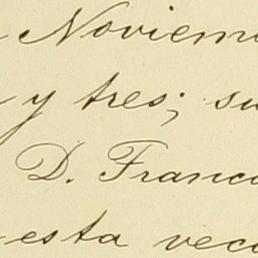 Noviem
y tres; su
D. Franc
esta vec